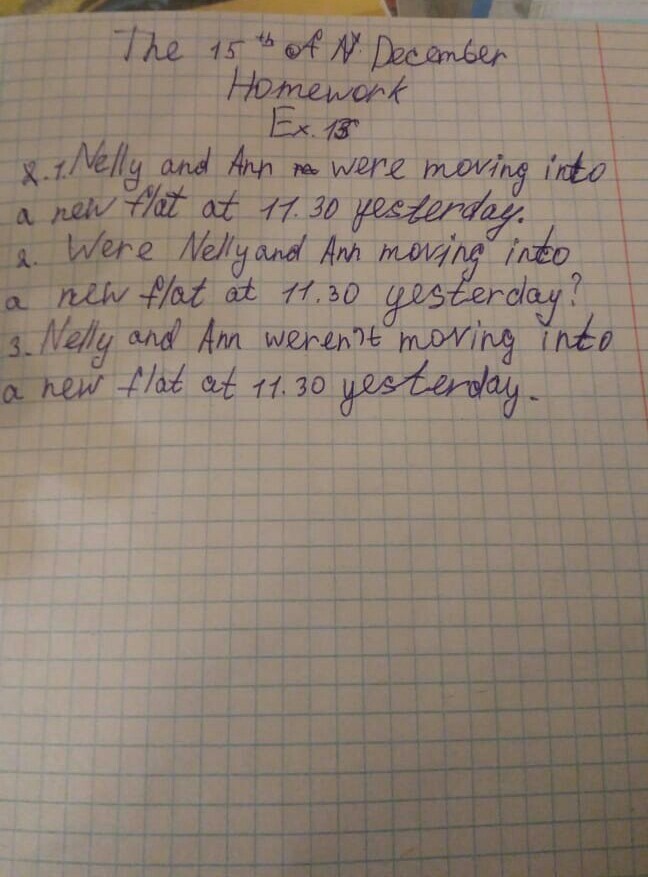 The 15th of December
Homework
Ex. 13
2.1. Nelly and Ann were moving into
a new flat at 11.30 yesterday.
2. Were Nelly and Ann moving into
a new flat at 11.30 yesterday?
3. Nelly and Ann weren't moving into
a new flat at 11.30 yesterday.